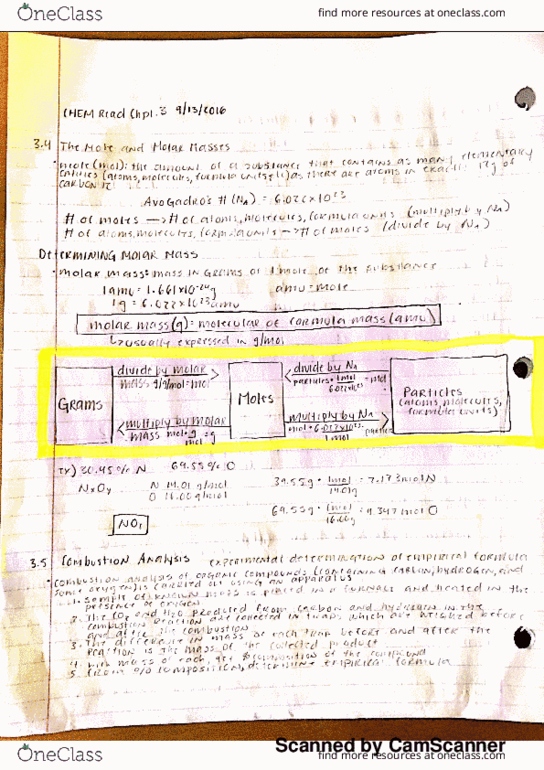 OneClass
find more resources at oneclass.com
CHEM Read Chpt. 3 9/13/2016
3.4 The Mole and Molar Masses
• mole (mol): the amount of a substance that contains as many elementary
entities (atoms, molecules, formula units, ) as there are atoms in exactly 12g of
carbon 12
Avogadro's # (NA) = 6.022x10²³
# of moles → # of atoms, molecules, formula units (multiply by NA)
# of atoms, molecules, formula units → # of moles (divide by NA)
Determining Molar Mass
• molar mass: mass in grams of 1 mole of the substance
1amu = 1.661x10⁻²⁴g amu = mole
1g = 6.022x10²³amu
molar mass (g) = molecular or formula mass (amu)
↳ usually expressed in g/mol
Grams
divide by molar
mass g/g/mol = mol
multiply by molar
mass
Moles
divide by NA
multiply by NA
Particles
(atoms, molecules,
formula units)
30.45% N 69.55% O
NxOy N 14.01 g/mol
O 16.00 g/mol
NO₂
3.5 Combustion Analysis experimental determination of empirical formula
• combustion analysis of organic compounds (containing carbon, hydrogen, and
some oxygen) is carried out using an apparatus
1. sample of known mass is placed in a furnace and heated in the
presence of oxygen
2. The CO₂ and H₂O produced from carbon and hydrogen in the
combustion reaction are collected in traps, which are weighed before
and after the combustion
3. The difference in mass of each trap before and after the
reaction is the mass of the collected product
4. with mass of each, get % composition of the compound
5. from % composition, determine empirical formula
Scanned by CamScanner
OneClass
find more resources at oneclass.com